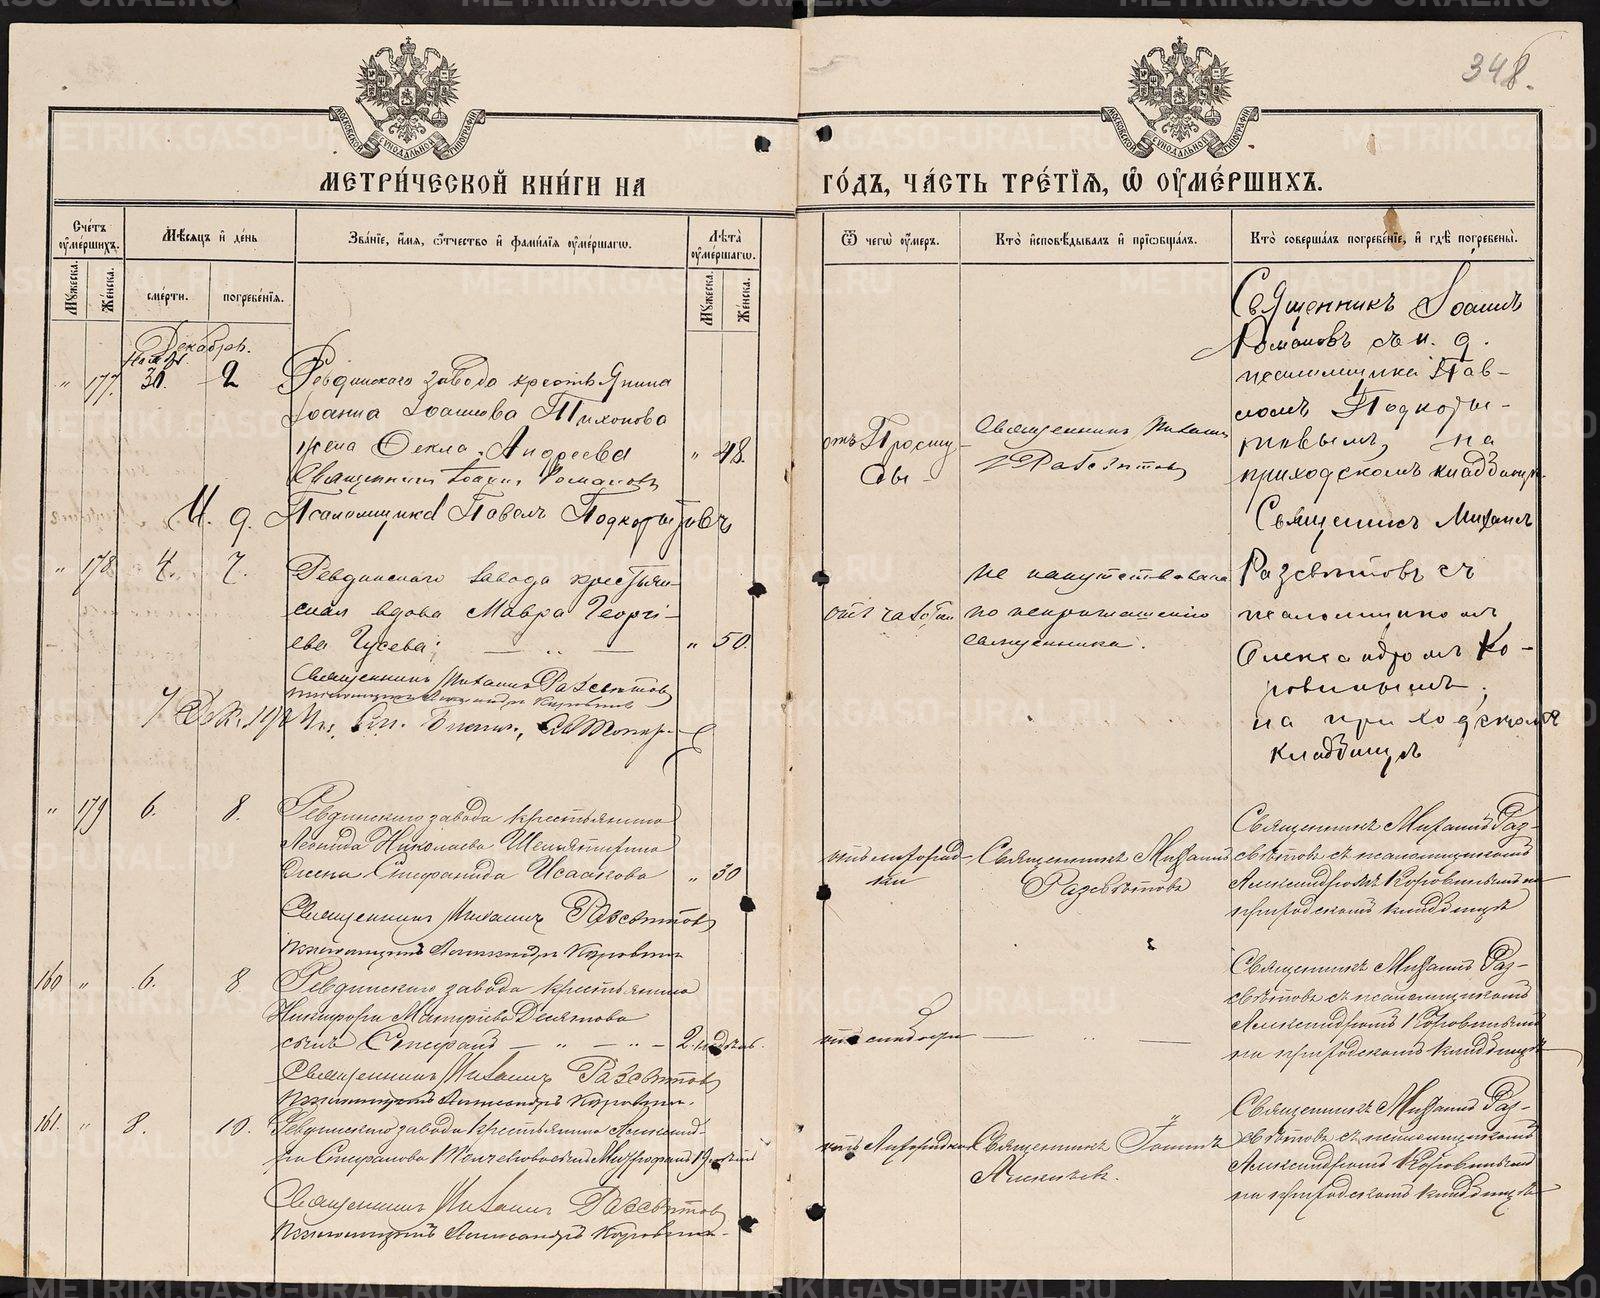 348.
МЕТРИ́ЧЕСКОЙ КНИ́ГИ НА
ГО́ДЪ, ЧА́СТЬ ТРЕ́ТІЯ, Ѿ ОУ҆МЕ́РШИХЪ.
Сче́тъ оу҆ме́ршихъ.
Мѣ́сяцъ и҆ де́нь
Зва́ніе, и҆́мя, ѻ҆́тчество и҆ фами́лія оу҆ме́ршагѡ.
Лѣ́та оу҆ме́ршагѡ.
Ѿ чегѡ̀ оу҆́меръ.
Кто̀ и҆сповѣ́дывалъ и҆ приѡбща́лъ.
Кто̀ соверша́лъ погребе́ніе, и҆ гдѣ̀ погребены̀.
Му́жеска.
Же́нска.
сме́рти.
погребе́нія.
Му́жеска.
Же́нска.
Декабрь.
Ноябр.
" 177. 30. 2
Ревдинскаго завода крестьянина
Іоанна Іоаннова Тихонова
жена Ѳекла Андреева " 48.
Священникъ Іоаннъ Романовъ
И. д. Псаломщика Павелъ Подкорытовъ
отъ Просту-
ды -
Священникъ Михаилъ
Разсвѣтовъ
Священникъ Іоаннъ
Романовъ съ и. д.
псаломщика Пав-
ломъ Подкоры-
товымъ, на
приходскомъ кладбищѣ.
" 178 4. 7.
Ревдинскаго завода крестьян-
ская вдова Мавра Георгі-
ева Гусева; " 50.
Священникъ Михаилъ Разсвѣтов
псаломщикъ Александръ Коровинъ
отъ чахотки
не напутствована
по неприглашенію
священника.
Священникъ Михаилъ
Разсвѣтовъ съ
псаломщикомъ
Александромъ Ко-
ровинымъ,
на приходскомъ
кладбищѣ
" 179 6. 8.
Ревдинскаго завода крестьянина
Леонида Николаева
жена Стефанида Исаакова " 30
Священникъ Михаилъ Разсвѣтов
псаломщикъ Александръ Коровинъ
отъ лихорад-
ки
Священникъ Михаилъ
Разсвѣтовъ
Священникъ Михаилъ Раз-
свѣтовъ съ псаломщикомъ
Александромъ Коровинымъ на
приходскомъ кладбищѣ
160 " 6. 8
Ревдинскаго завода крестьянина
Никифора Десятова
сынъ Стефанъ 2. недѣль.
Священникъ Михаилъ Разсвѣтов
псаломщикъ Александръ Коровинъ.
Священникъ Михаилъ Раз-
свѣтовъ съ псаломщикомъ
Александромъ Коровинымъ
на приходскомъ кладбищѣ
161. " 8. 10.
Ревдинскаго завода крестьянина Александ-
ра Стефанова сынъ Митрофанъ 19
Священникъ Михаилъ Разсвѣтов
псаломщикъ Александръ Коровин.
отъ Лихорадки
Священникъ Іоаннъ
Священникъ Михаилъ Раз-
свѣтовъ съ псаломщикомъ
Александромъ Коровинымъ
на приходскомъ кладбищѣ
METRIKI.GASO-URAL.RU